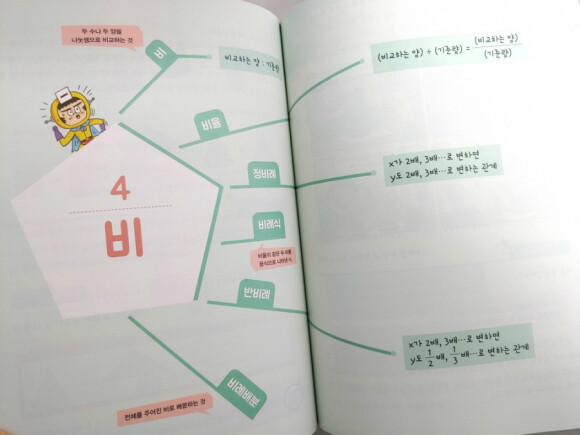 두 수나 두 양을
나눗셈으로 비교하는 것
비
비교하는 양 : 기준량
(비교하는 양) ÷ (기준량) = (비교하는 양)
(기준량)
비율
정비례
x가 2배, 3배…로 변하면
y도 2배, 3배…로 변하는 관계
4
비
비례식
비율이 같은 두 비를
등식으로 나타낸 식
반비례
x가 2배, 3배…로 변하면
y도 1/2배, 1/3배…로 변하는 관계
비례배분
전체를 주어진 비로 배분하는 것